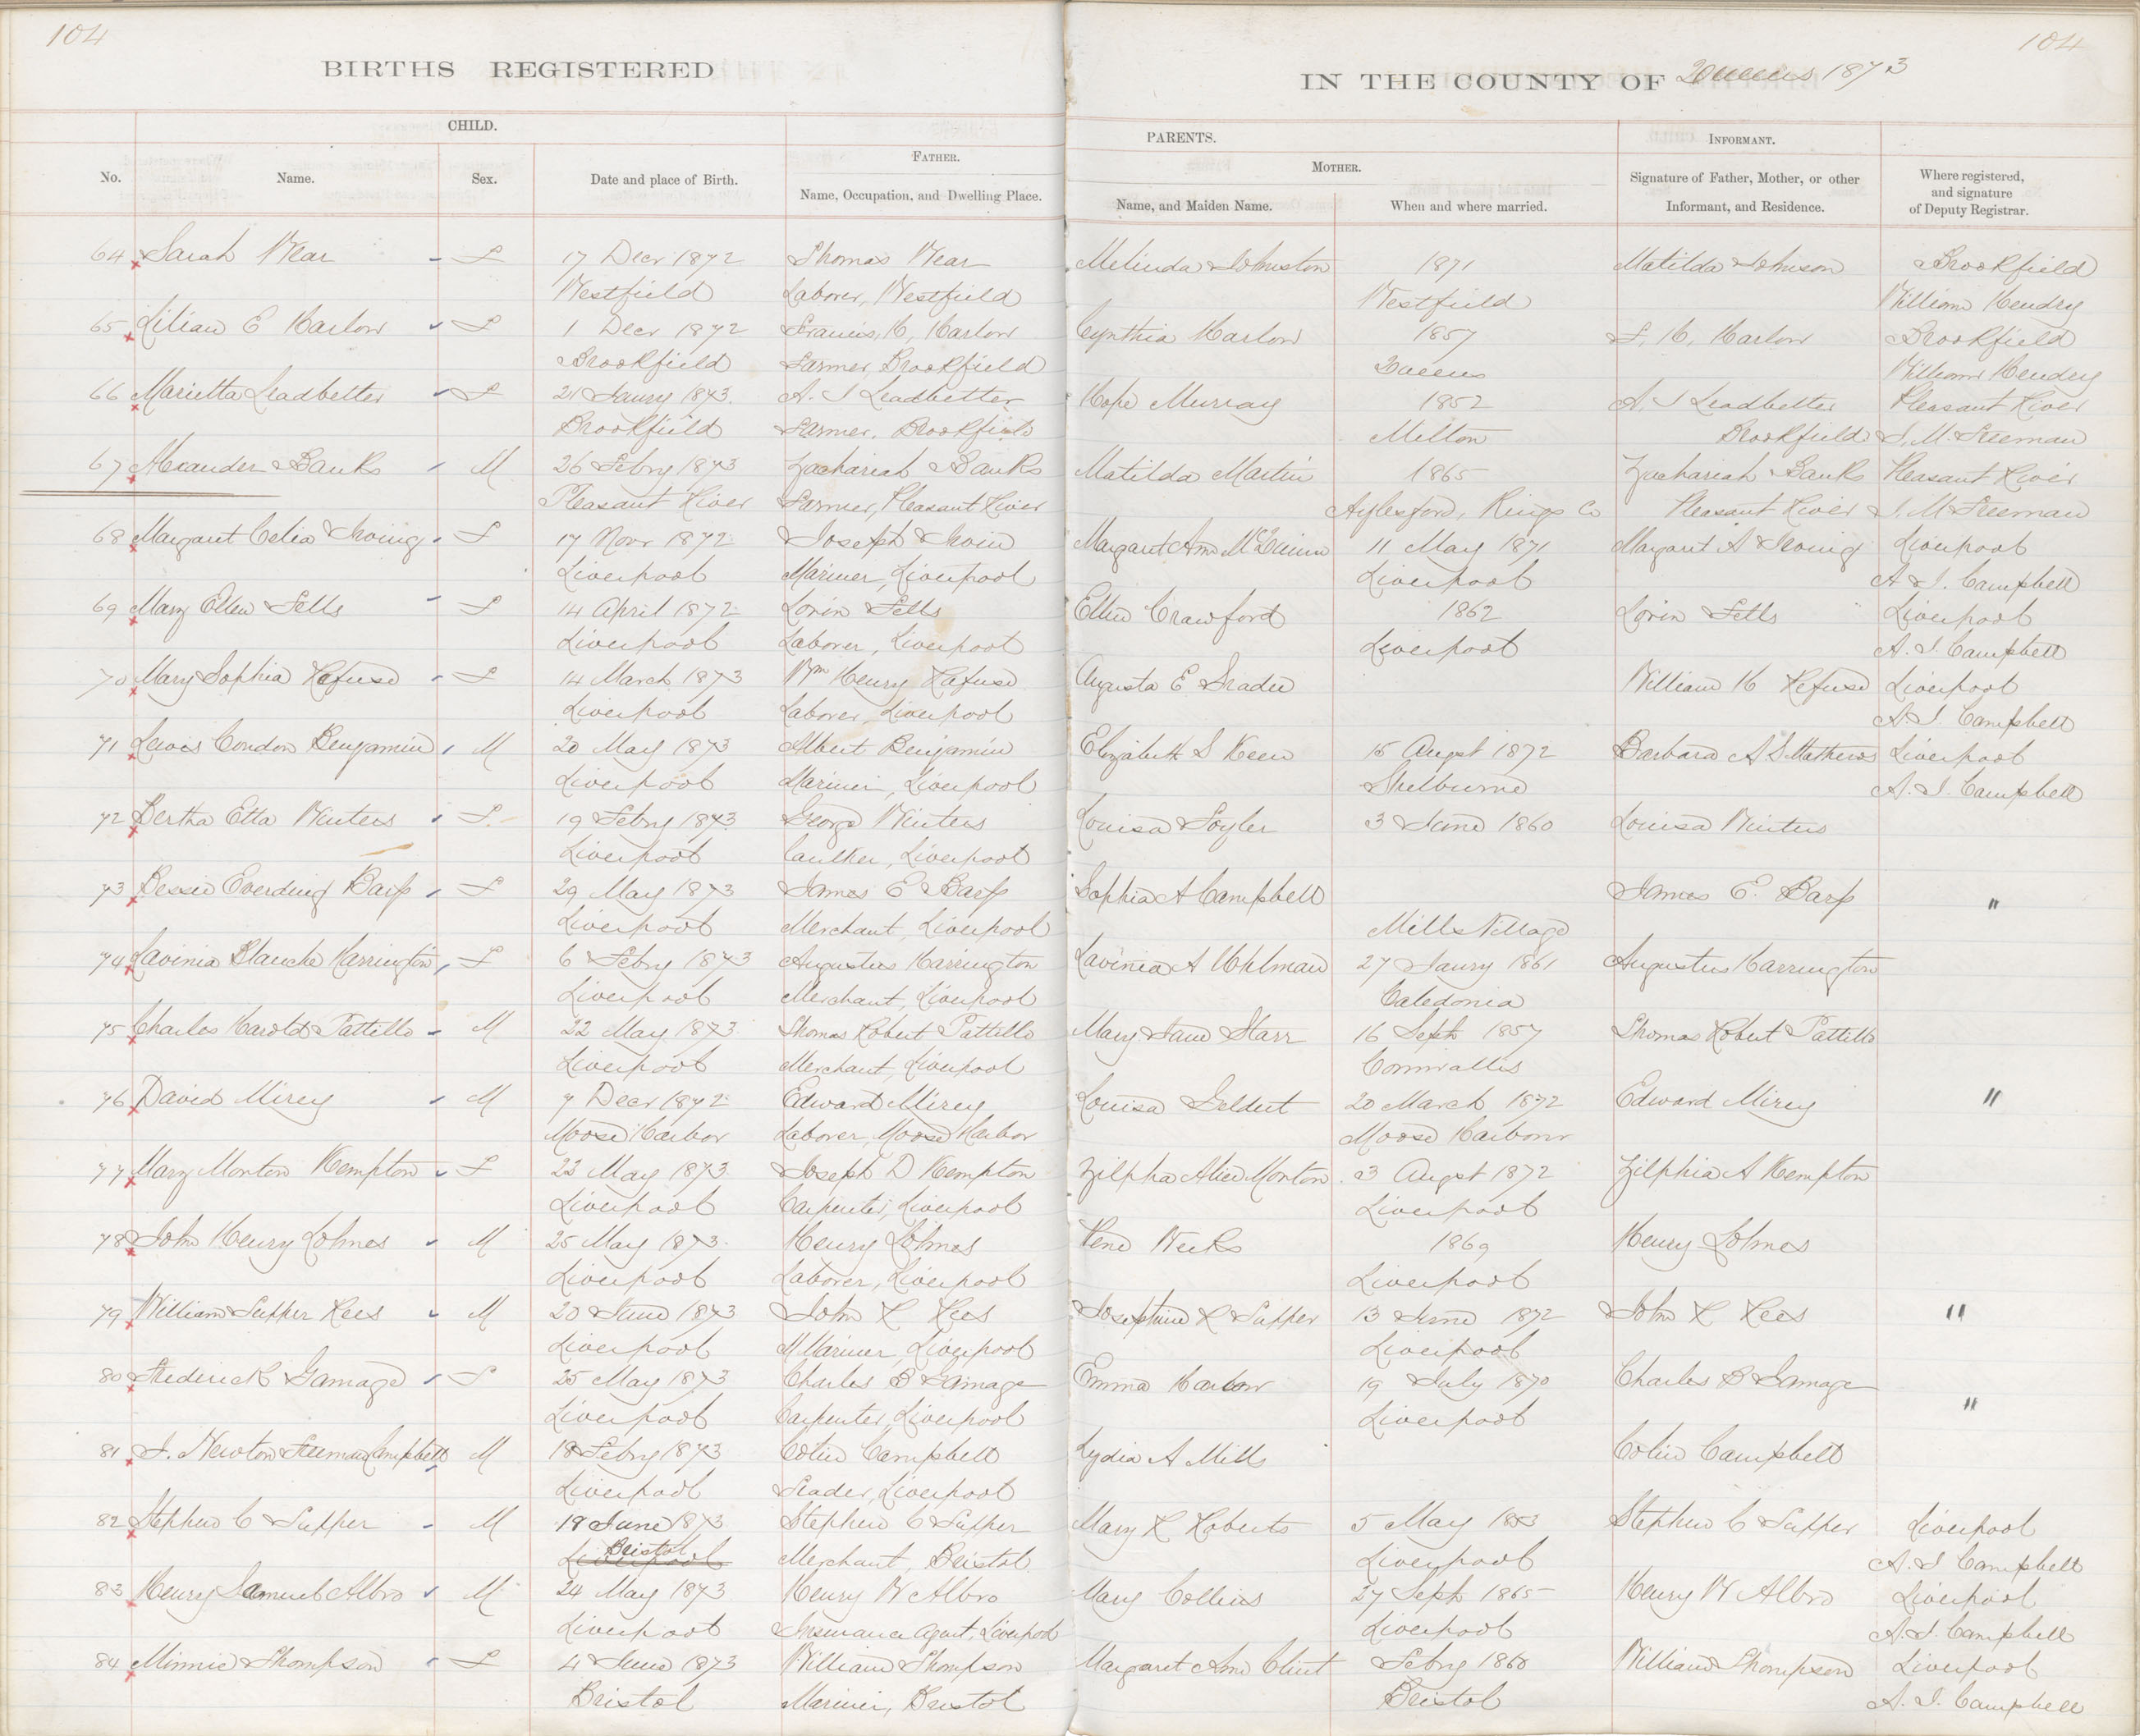 104
104
BIRTHS REGISTERED
IN THE COUNTY OF Queens 1873
CHILD.
PARENTS.
INFORMANT.
No.
Name.
Sex.
Date and place of Birth.
FATHER.
Name, Occupation, and Dwelling Place.
MOTHER.
Name, and Maiden Name.
When and where married.
Signature of Father, Mother, or other
Informant, and Residence.
Where registered,
and signature
of Deputy Registrar.
64 Sarah Wear - F 17 Decr 1872 Thomas Wear Melinda Johnston 1871 Matilda Johnson Brookfield
Westfield Laborer, Westfield Westfield William Hendry
65 Lilian E Harlow F 1 Decr 1872 Francis, H, Harlow Cynthia Harlow 1857 F, H, Harlow Brookfield
Brookfield Farmer, Brookfield Queens William Hendry
66 Marietta Leadbetter F 21 Janry 1873. A. J Leadbetter Hope Murray 1852 A, J Leadbetter Pleasant River
Brookfield Farmer, Brookfield Milton Brookfield J, M, Freeman
67 Alexander Banks M 26 Febry 1873 Zachariah Banks Matilda Martin 1865 Zachariah Banks Pleasant River
Pleasant River Farmer, Pleasant River Aylesford, Kings Co Pleasant River J, M Freeman
68 Margaret Celia Irving F 17 Novr 1872 Joseph Irvin Margaret Ann 11 May 1871 Margaret A Irving Liverpool
Liverpool Mariner, Liverpool Liverpool A J. Campbell
69 Mary Ellen Fells F 14 April 1872 Lorin Fells Ellen Crawford 1862 Lorin Fells Liverpool
Liverpool Laborer, Liverpool Liverpool A. J. Campbell
70 Mary Sophia Rafuse F 14 March 1873 Wm Henry Rafuse Augusta E William H Refuse Liverpool
Liverpool Laborer, Liverpool A. J. Campbell
71 Lewis Condon Benjamin M 20 May 1873 Albert Benjamin Elizabeth S Keen 15 Augst 1872 Barbara A S. Mathews Liverpool
Liverpool Mariner, Liverpool Shelburne A. J. Campbell
72 Bertha Etta Winters F. 19 Febry 1873 George Winters Louisa 3 June 1860 Louisa Winters
Liverpool Caulker, Liverpool
73 Bessie Everding Barss F 29 May 1873 James E Barss Sophia A Campbell James E. Barss "
Liverpool Merchant, Liverpool Mills Village
74 Lavinia Blanche Harrington F 6 Febry 1873 Augustus Harrington Lavinia A Uhlman 27 Janry 1861 Augustus Harrington
Liverpool Merchant, Liverpool Caledonia
75 Charles Harold Pattillo M 22 May 1873 Thomas Robert Pattillo Mary Jane Starr 16 Sept 1857 Thomas Robert Pattillo
Liverpool Merchant, Liverpool Cornwallis
76 David Mirey M 7 Decr 1872 Edward Mirey Louisa Geldert 20 March 1872 Edward Mirey "
Moose Harbor Laborer, Moose Harbor Moose Harbour
77 Mary Morton Kempton F 22 May 1873 Joseph D Kempton Zilpha Alice Morton 3 Augst 1872 Zilphia A Kempton
Liverpool Carpenter, Liverpool Liverpool
78 John Henry Lohnes M 25 May 1873 Henry Lohnes Weeks 1869 Henry Lohnes
Liverpool Laborer, Liverpool Liverpool
79 William Tupper Rees M 20 June 1873 John R Rees Josephine R Tupper 13 June 1872 John R Rees "
Liverpool M Mariner, Liverpool Liverpool
80 Frederick Gamage F 25 May 1873 Charles B Gamage Emma Harlow 19 July 1870 Charles B Gamage "
Liverpool Carpenter, Liverpool Liverpool
81 J. Newton Freeman Campbell M 18 Febry 1873 Colin Campbell Lydia A Mills Colin Campbell
Liverpool Trader, Liverpool
82 Stephen C Tupper M 18 June 1873 Stephen C Tupper Mary R Roberts 5 May 1853 Stephen C Tupper Liverpool
Liverpool Bristol Merchant, Bristol Liverpool A. J Campbell
83 Henry Samuel Albro M 24 May 1873 Henry W Albro Mary Collins 27 Sept 1865 Henry W Albro Liverpool
Liverpool Insurance Agent, Liverpool Liverpool A. J. Campbell
84 Minnie Thompson F 4 June 1873 William Thompson Margaret Ann Clint Febry 1860 William Thompson Liverpool
Bristol Mariner, Bristol Bristol A. J. Campbell